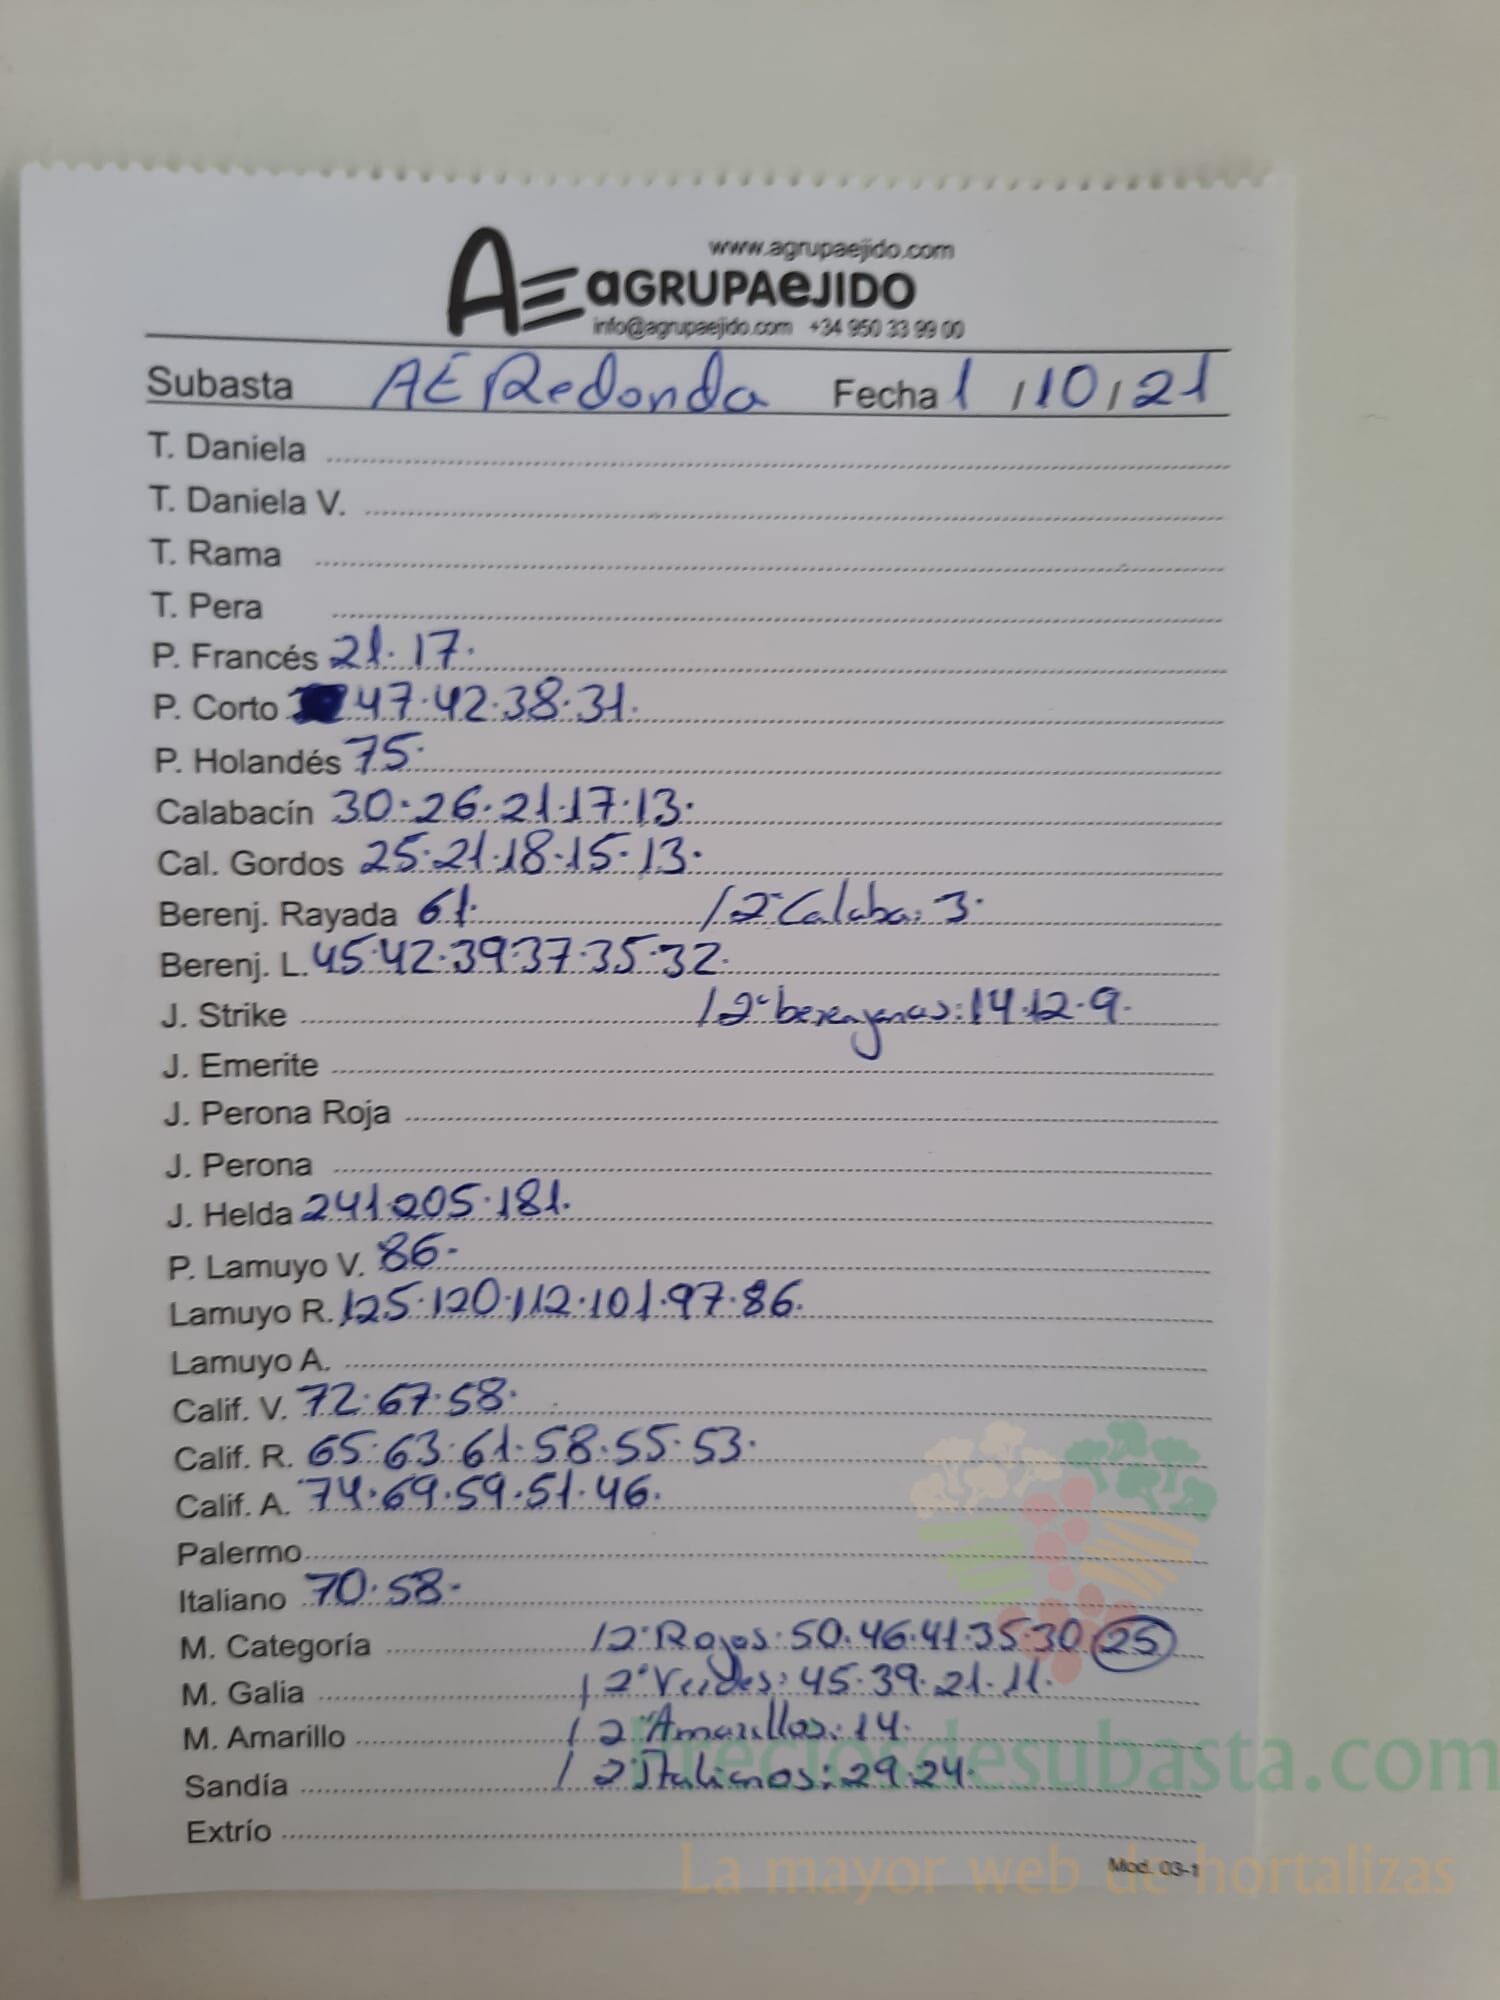 www.agrupaejido.com
AE aGRUPAeJIDO
info@agrupaejido.com +34 950 33 99 00
Subasta AE Redonda Fecha 1 / 10 / 21
T. Daniela
T. Daniela V.
T. Rama
T. Pera
P. Francés 21. 17.
P. Corto 47.42.38.31.
P. Holandés 75.
Calabacín 30.26.21.17.13.
Cal. Gordos 25.21.18.15.13.
Berenj. Rayada 61. / 2ª Calaba: 3.
Berenj. L. 45.42.39.37.35.32.
J. Strike / 2ª berenjenas: 14.12.9.
J. Emerite
J. Perona Roja
J. Perona
J. Helda 241.205.181.
P. Lamuyo V. 86.
Lamuyo R. 125.120.112.101.97.86.
Lamuyo A.
Calif. V. 72.67.58.
Calif. R. 65.63.61.58.55.53.
Calif. A. 74.69.59.51.46.
Palermo
Italiano 70.58.
M. Categoría / 2ª Rojos: 50.46.41.35.30 25
M. Galia / 2ª Verdes: 45.39.21.11.
M. Amarillo / 2ª Amarillos: 14.
Sandía / 2ª Italianos: 29.24.
Extrío
Mod. 03-1
Preciosdesubasta.com
La mayor web de hortalizas